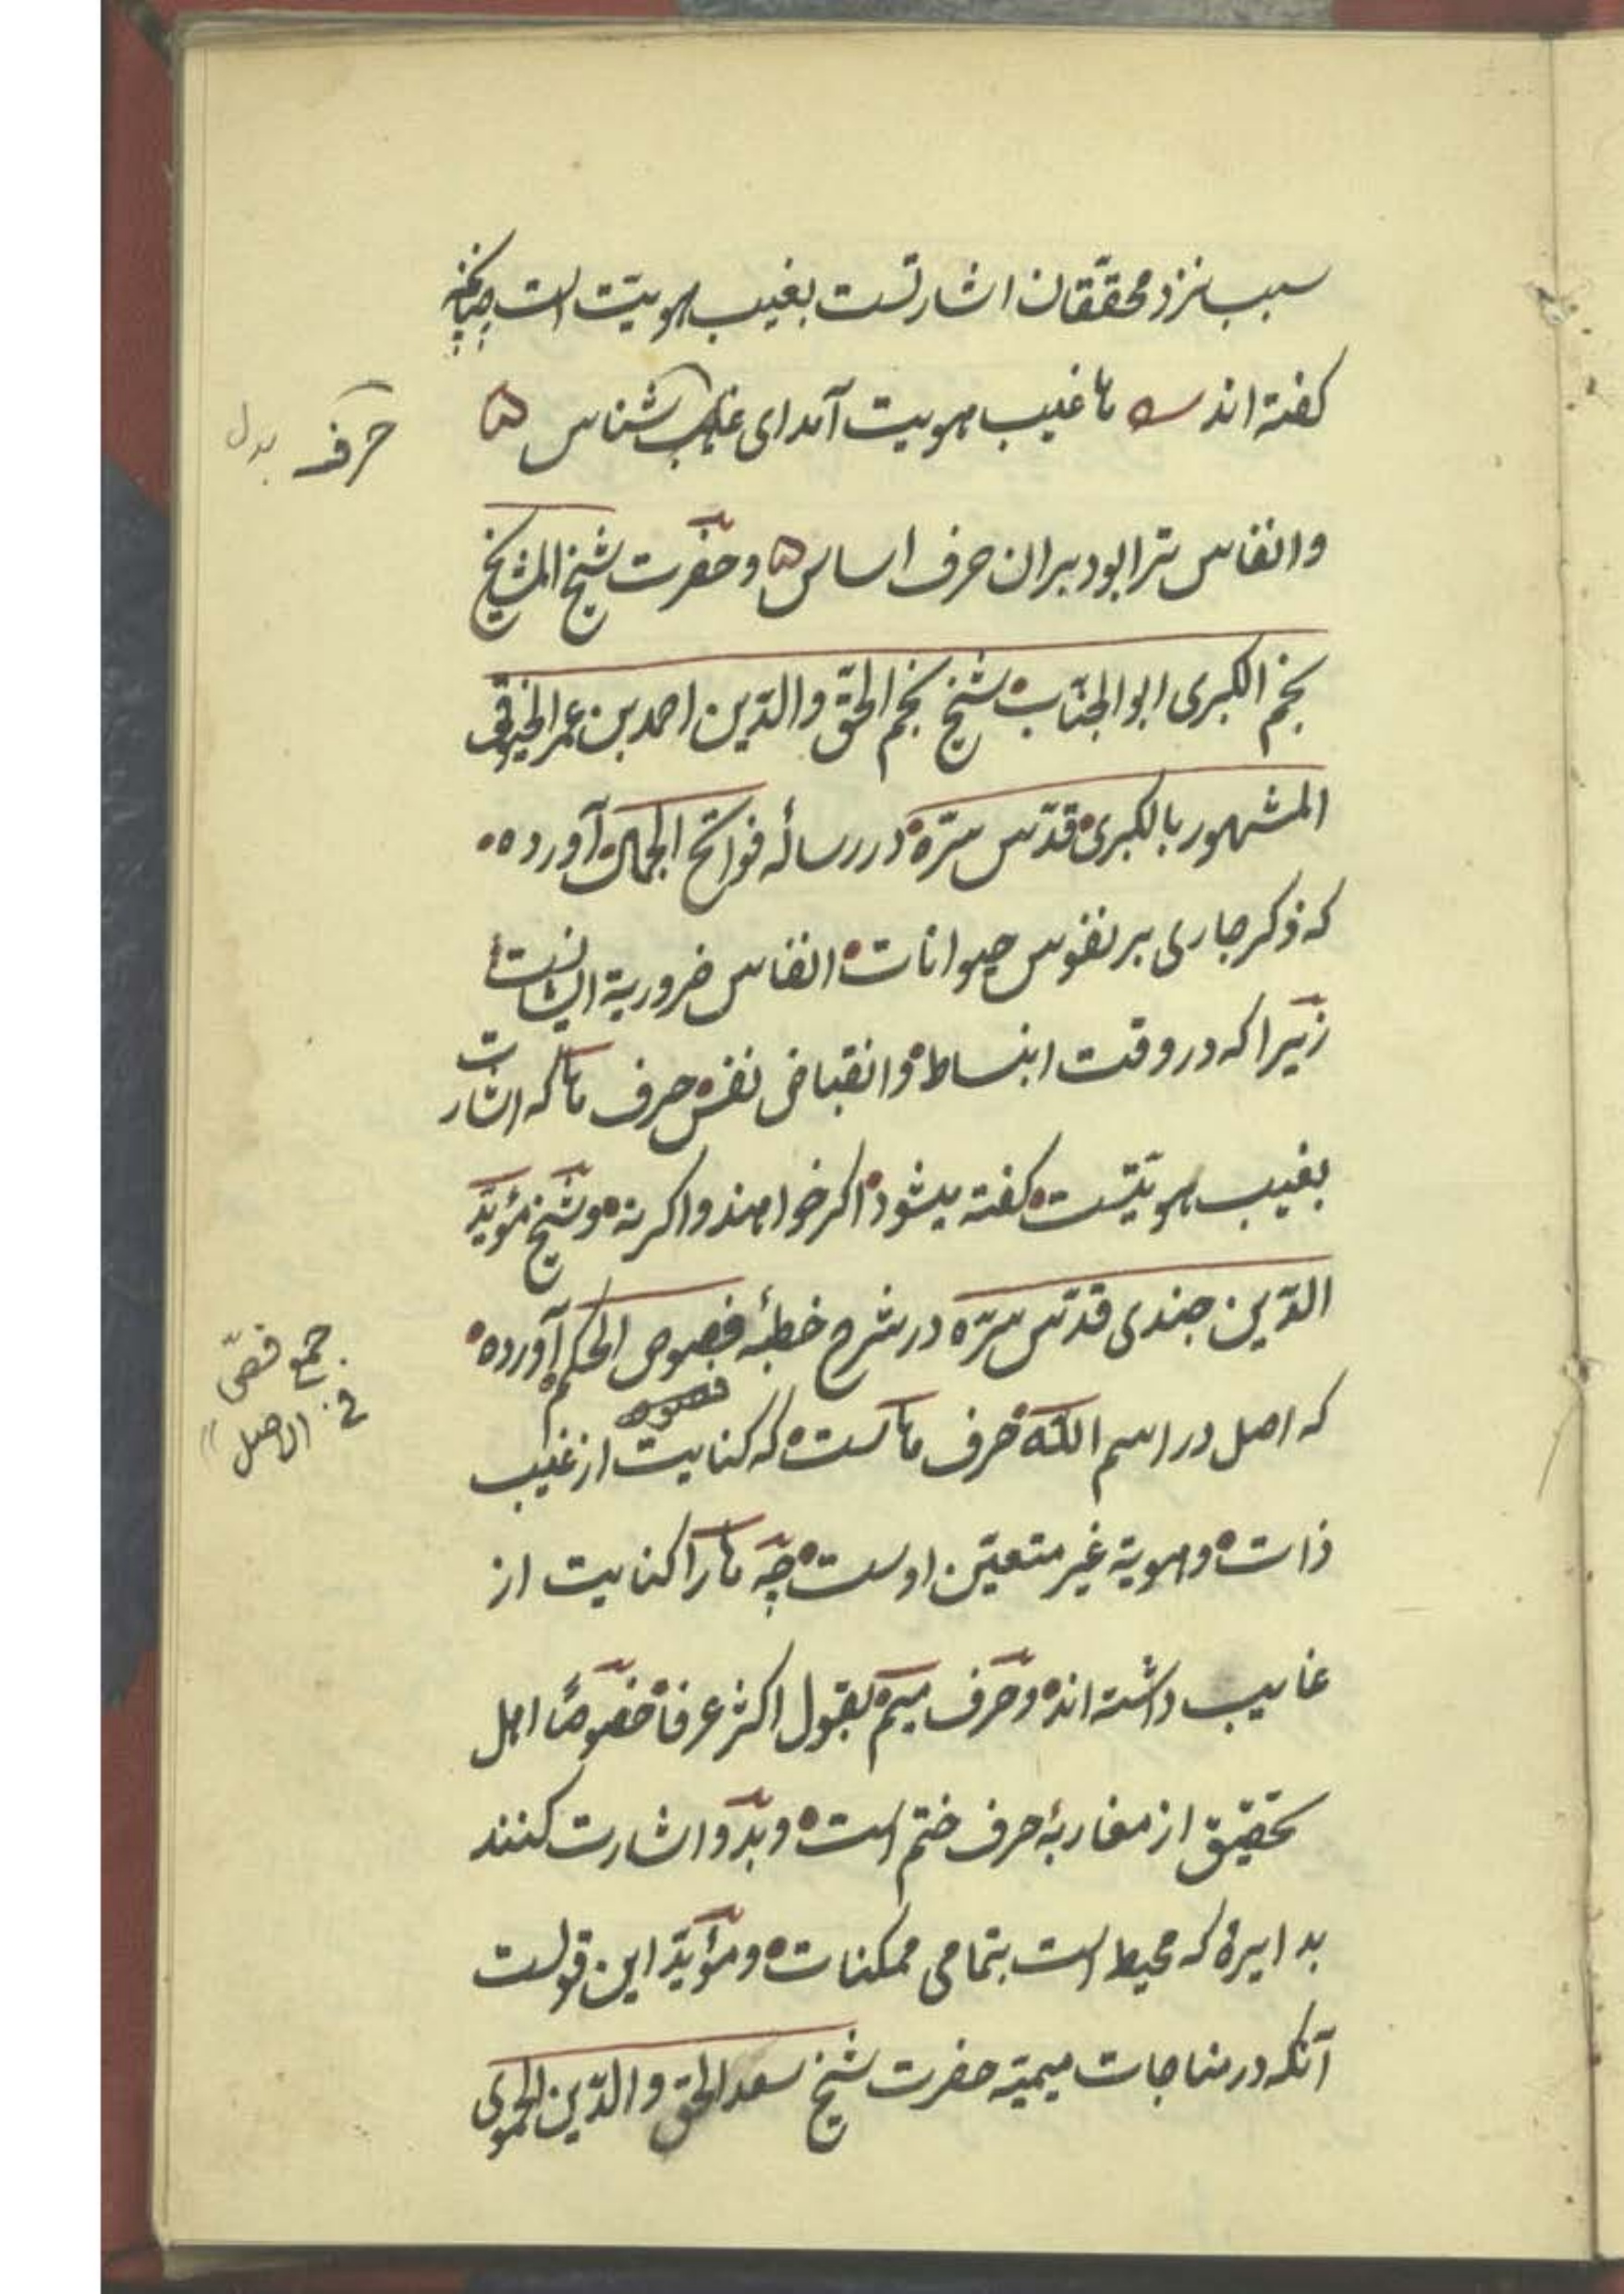 سبب نزد محققان اشارتست بغیب هویت است چنانچه
کفته اند ها غیب هویت آمد ای غیب شناس
حرف بدل
وانفاس ترا بود بران حرف اساس و حضرت شیخ المشایخ
نجم الکبری ابو الجناب شیخ نجم الحق والدین احمد بن عمر الخیوقی
المشهور بالکبری قدّس سرّه در رسالۀ فواتح الجمال آورده
که ذکر جاری بر نفوس حیوانات انفاس ضروریة ایشانست
زیرا که در وقت انبساط و انقباض نفس حرف ها که اشارت
بغیب هویتست کفته میشود اکر خواهند و اکر نه و شیخ مؤید
الدّین جندی قدّس سرّه در شرح خطبۀ فصوص الحکم آورده
جمع فصّی
فی الاصل
که اصل در اسم اللّه حرف ها است که کنایت از غیب
ذات و هویة غیر متعیّن اوست چه ها را کنایت از
غایب داشته اند و حرف میم بقول اکثر عرفا خصوصًا اهل
تحقیق از مغاربۀ حرف ختم است و بدو اشارت کنند
بدایرۀ که محیط است بتمامی ممکنات و مؤید این قولست
آنکه در مناجات میمیّه حضرت شیخ سعد الحق والدّین الحموی